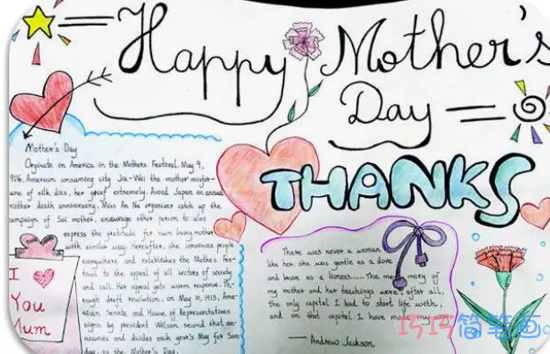 Happy Mother's
Day
THANKS
Mother's Day
Orginate in America in the Mothers Festival. May 9,
906, American consuming city Jia-Wei the mother
me of silk dies, her grief extremely. Avoid Japan in annua
mother death anniversary, Miss An Na organizes catch up the
campaign of Sai mother, encourage other person to also
express the gratitude for own loving mother
with similar way. Hereafter, she convinces people
everywhere and establishes the Mother Fes-
tival to the appeal of all sectors of society
and call. Her appeal gets warm response. Th-
rough draft resolution on May 10, 1913, Ame-
rican Senate and House of Representatives
signs by president Wilson second that an-
nounces and divides each year's May for Sun-
day to the Mother's Day.
I
You
Mum
There was never a woman
like her. she was gentle as a dove
and brave as a lioness...... The memory of
my mother and her teachings were after all,
the only capital I had to start life with,
and on that capital I have made my way
—— Andrews Jackson
巧巧简笔画